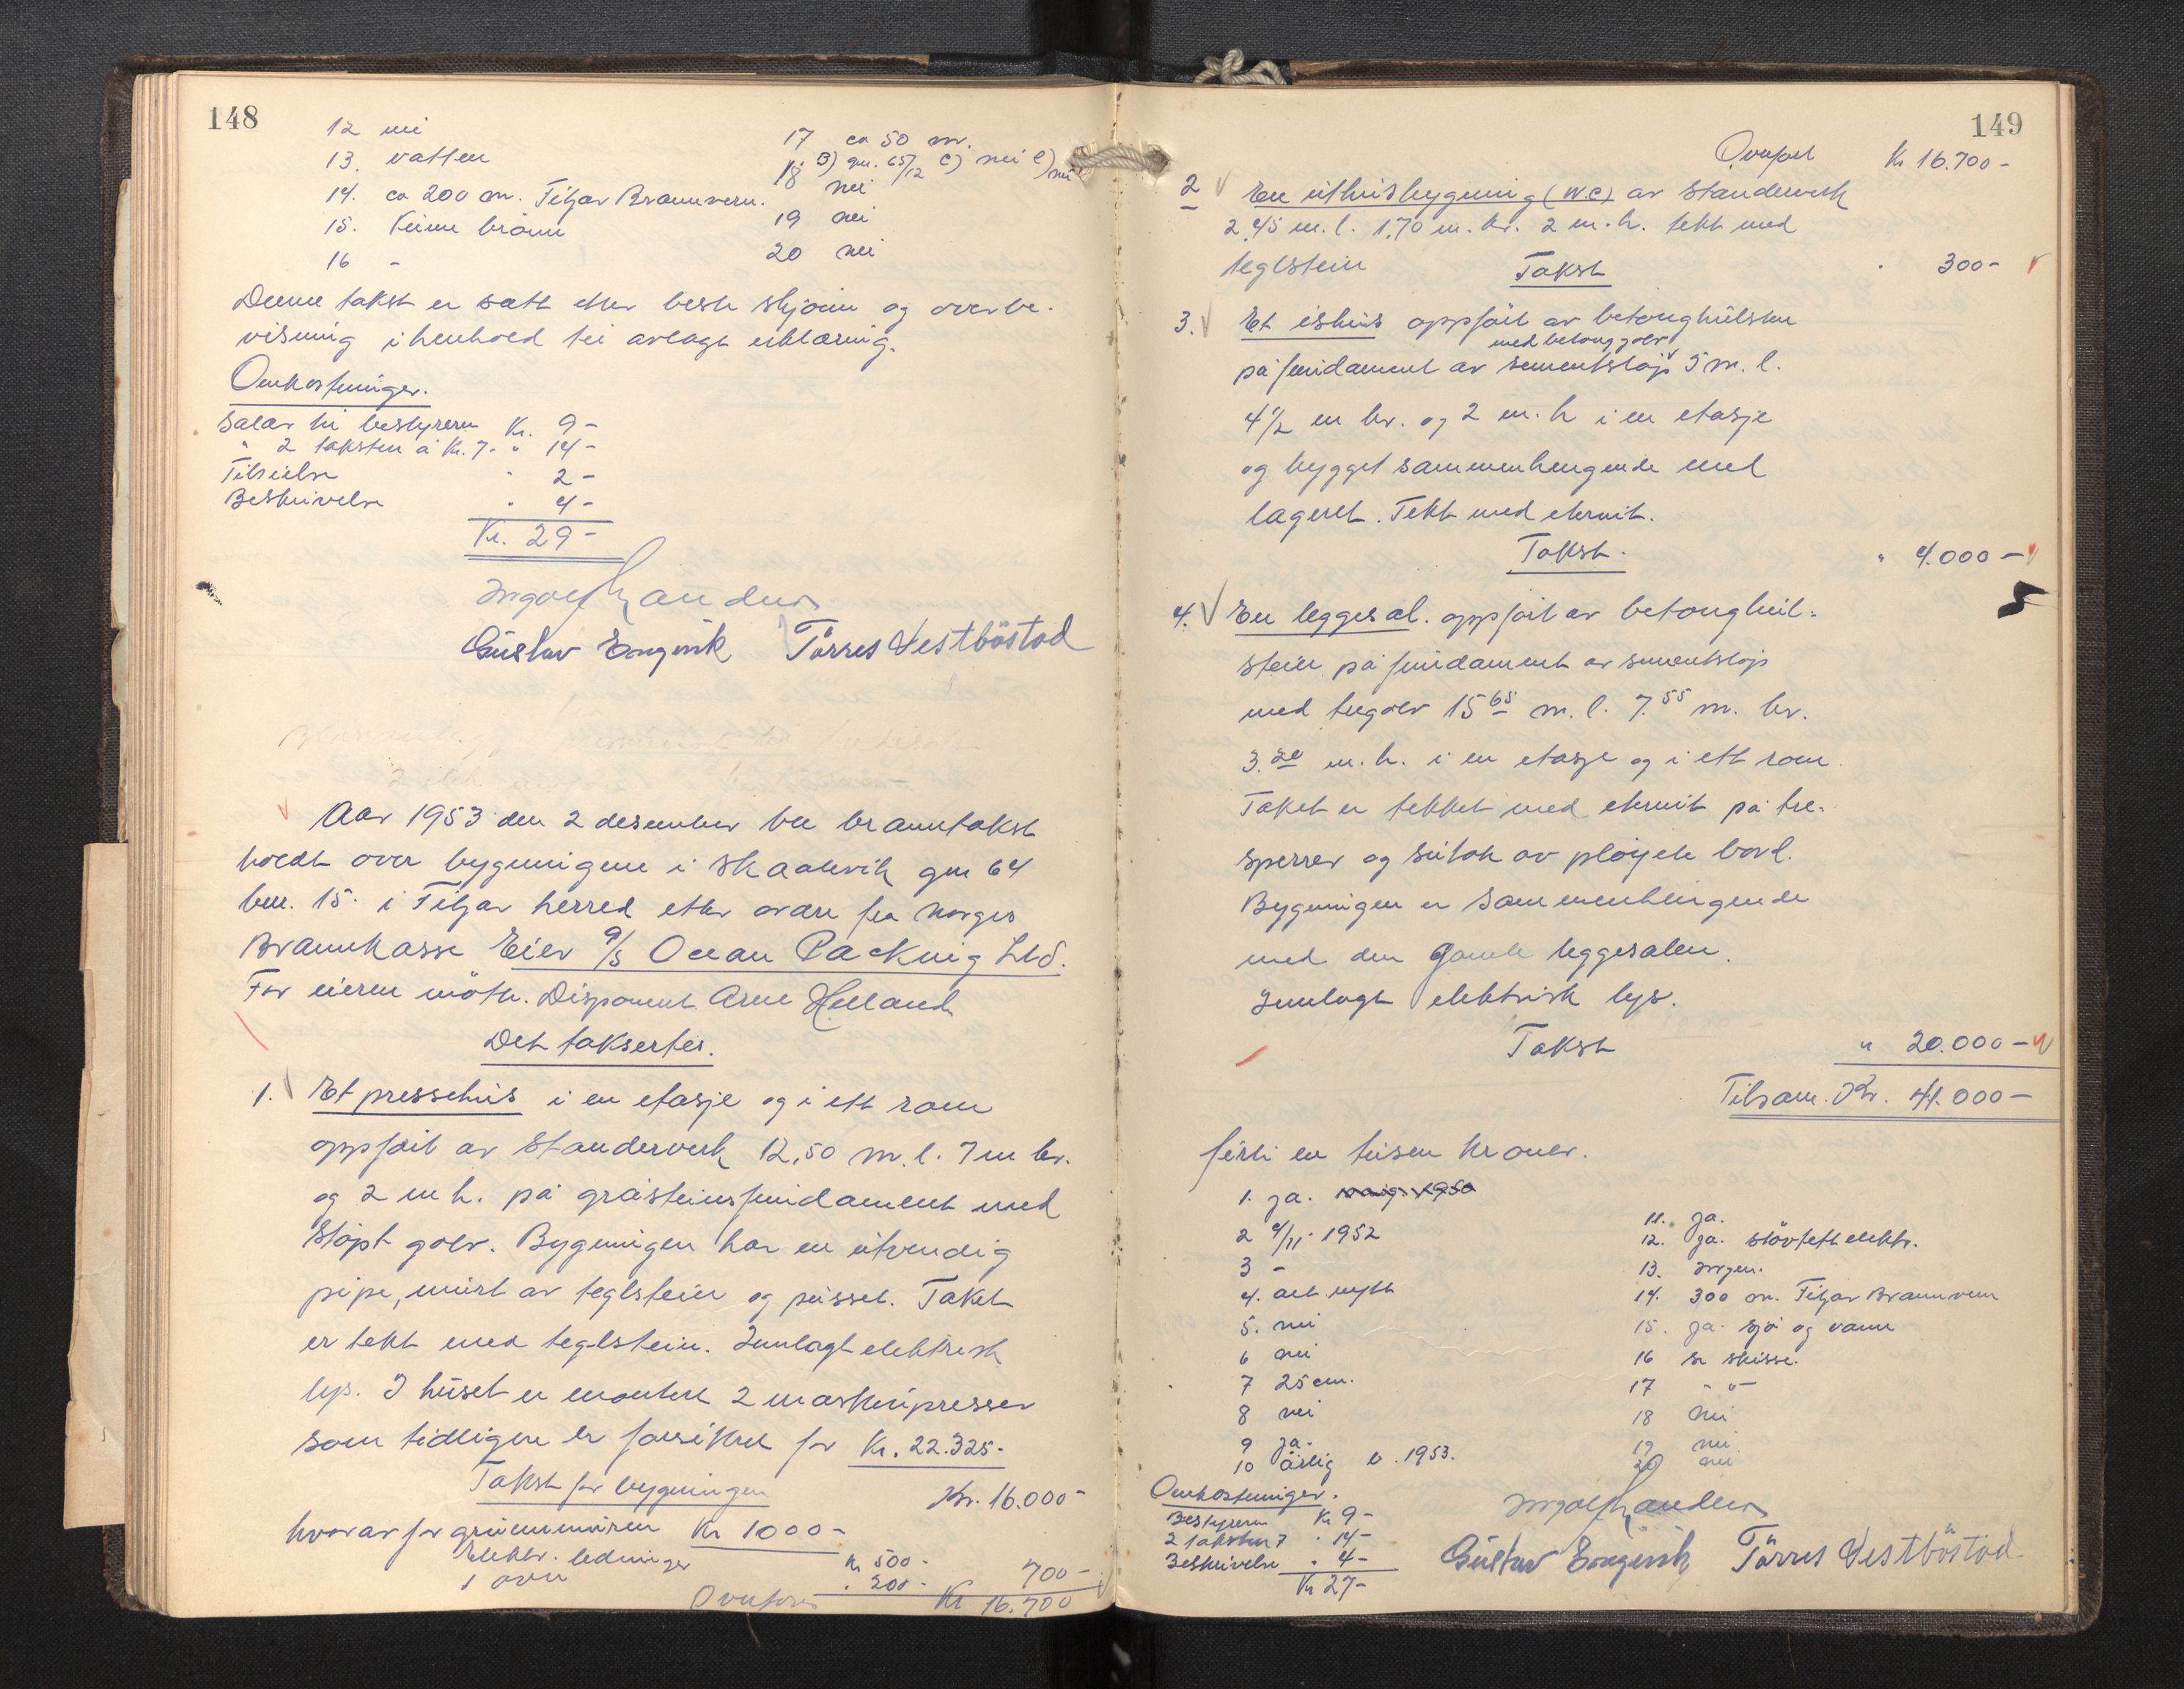 148
12 nei
13. vatten
14. ca 200 m. Fitjar Brannvern.
15. Keime brönn
16 -
17 ca 50 m.
B) gnr. 65/12 C) nei e) nei
18 nei
19 nei
20 nei
Denne takst er satt etter beste skjönn og overbe-
visning i henhold til avlagt erklæring.
Omkostninger.
Salær til bestyreren Kr. 9-
" 2 takstm á Kr. 7- " 14-
Tilsielse " 2-
Beskrivelse " 4-
Kr. 29-
Gustav Engevik Törres Vestböstad
Aar 1953 den 2 desember ble branntakst
holdt over bygningene i Skaalevik gnr 64
bnr. 15. i Fitjar herred etter ordre fra Norges
Brannkasse Eier A/S Ocean Packing Ltd.
For eieren møtte. Disponent Arne Helland
Det taksertes.
1. Et pressehus i en etasje og i ett rom
oppført av Standerverk 12,50 m. l. 7 m br.
og 2 m h. på gråsteinsfundament med
Støpt golv. Bygningen har en utvendig
pipe, murt av teglstein og pusset. Taket
er tekt med teglstein. Innlagt elektrisk
lys. I huset er montert 2 maskinpresser
som tidligere er forsikret for Kr. 22.325-
Takst for bygningen Kr. 16.000-
hvorav for grunnmuren Kr 1000-
Elektr. ledninger Kr 500-
1 ovn " 200- 700-
Overføres Kr 16.700
149
Overført Kr 16.700-
2 En uthusbygning (W.C) av Standerverk
2,45 m. l. 1,70 m. br. 2 m. h. tekt med
teglstein Takst " 300-
3. Et ishus oppført av betonghulsten
med betonggolv
på fundament av sementstøp 5 m. l.
4 1/2 m br. og 2 m. h i en etasje
og bygget sammenhengende med
lageret. Tekt med eternit.
Takst. " 4.000-
4. En leggesal. oppført av betonghul-
stein på fundament av sementstøp
med tregolv 15 65 m. l. 7.55 m. br.
3.20 m. h. i en etasje og i ett rom.
Taket er tekket med eternit på tre-
sperrer og sutak av pløyete bord.
Bygningen er sammenhengende
med den gamle leggesalen.
Innlagt elektrisk lys.
Takst " 20.000-
Tilsam. Kr. 41.000-
førti en tusen kroner.
1. ja.
2 4/11. 1952
3 -
4. alt nytt
5. nei
6 nei
7 25 cm.
8 nei
9 ja.
10 årlig 1953.
11. ja.
12. ja. støvtett elektr.
13. Ingen.
14. 300 m. Fitjar Brannvern
15. ja. sjø og vann
16 se skisse.
17 - " -
18 nei
19 nei
20 nei
Omkostninger.
Bestyreren Kr 9-
2 takstm 7 " 14-
Beskrivelse " 4-
Kr 27-
Gustav Engevik Törres Vestböstad